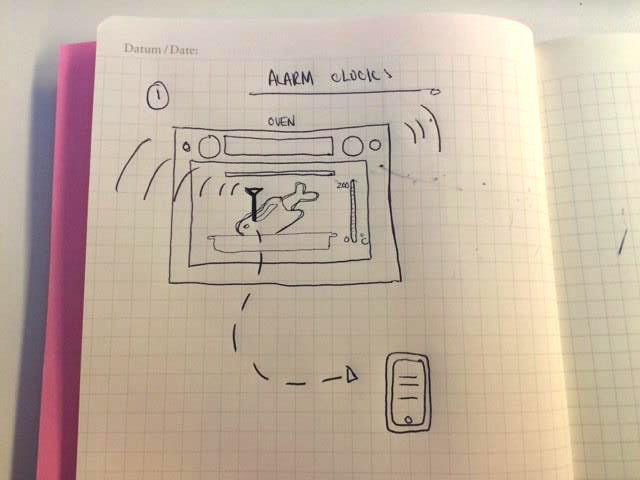 Datum / Date:
ALARM CLOCKS
1
OVEN
200
0 °C